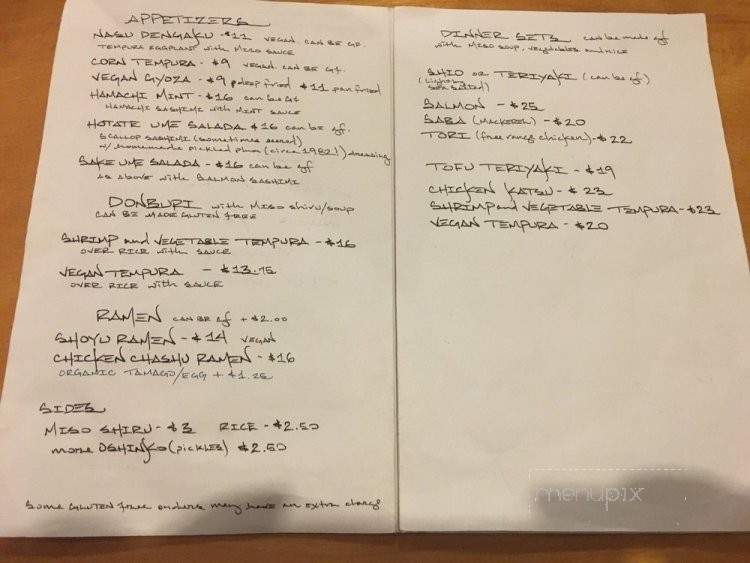 APPETIZERS
NASU DENGAKU - $11 VEGAN. CAN BE GF.
TEMPURA EGGPLANT with MISO SAUCE
CORN TEMPURA - $9 VEGAN. CAN BE Gf.
VEGAN GYOZA - $9 deep fried $11 pan fried
HAMACHI MINT - $16 can be Gf
HAMACHI SASHIMI with MINT SAUCE
HOTATE UME SALADA $16 can be gf.
SCALLOP SASHIMI (sometimes seared)
w/ homemade pickled plum (circa 1982!) dressing
SAKE UME SALADA - $16 can be gf
as above with SALMON SASHIMI
DONBURI with MISO shiru/soup
CAN BE MADE GLUTEN FREE
SHRIMP and VEGETABLE TEMPURA - $16
OVER RICE with SAUCE
VEGAN TEMPURA - $13.75
OVER RICE with SAUCE
RAMEN CAN BE gf + $2.00
SHOYU RAMEN - $14 VEGAN
CHICKEN CHASHU RAMEN - $16
ORGANIC TAMAGO/EGG + $1.25
SIDES
MISO SHIRU - $3 RICE - $2.50
more OSHINKO (pickles) $2.50
Some GLUTEN free orders may have an extra charge
DINNER SETS can be made gf
with MISO soup, vegetables and rice
SHIO or TERIYAKI (can be gf)
(Lightly sea salted)
SALMON - $25
SABA (MACKEREL) - $20
TORI (free range chicken) - $22
TOFU TERIYAKI - $19
CHICKEN KATSU - $23
SHRIMP and VEGETABLE TEMPURA - $23
VEGAN TEMPURA - $20
menupix